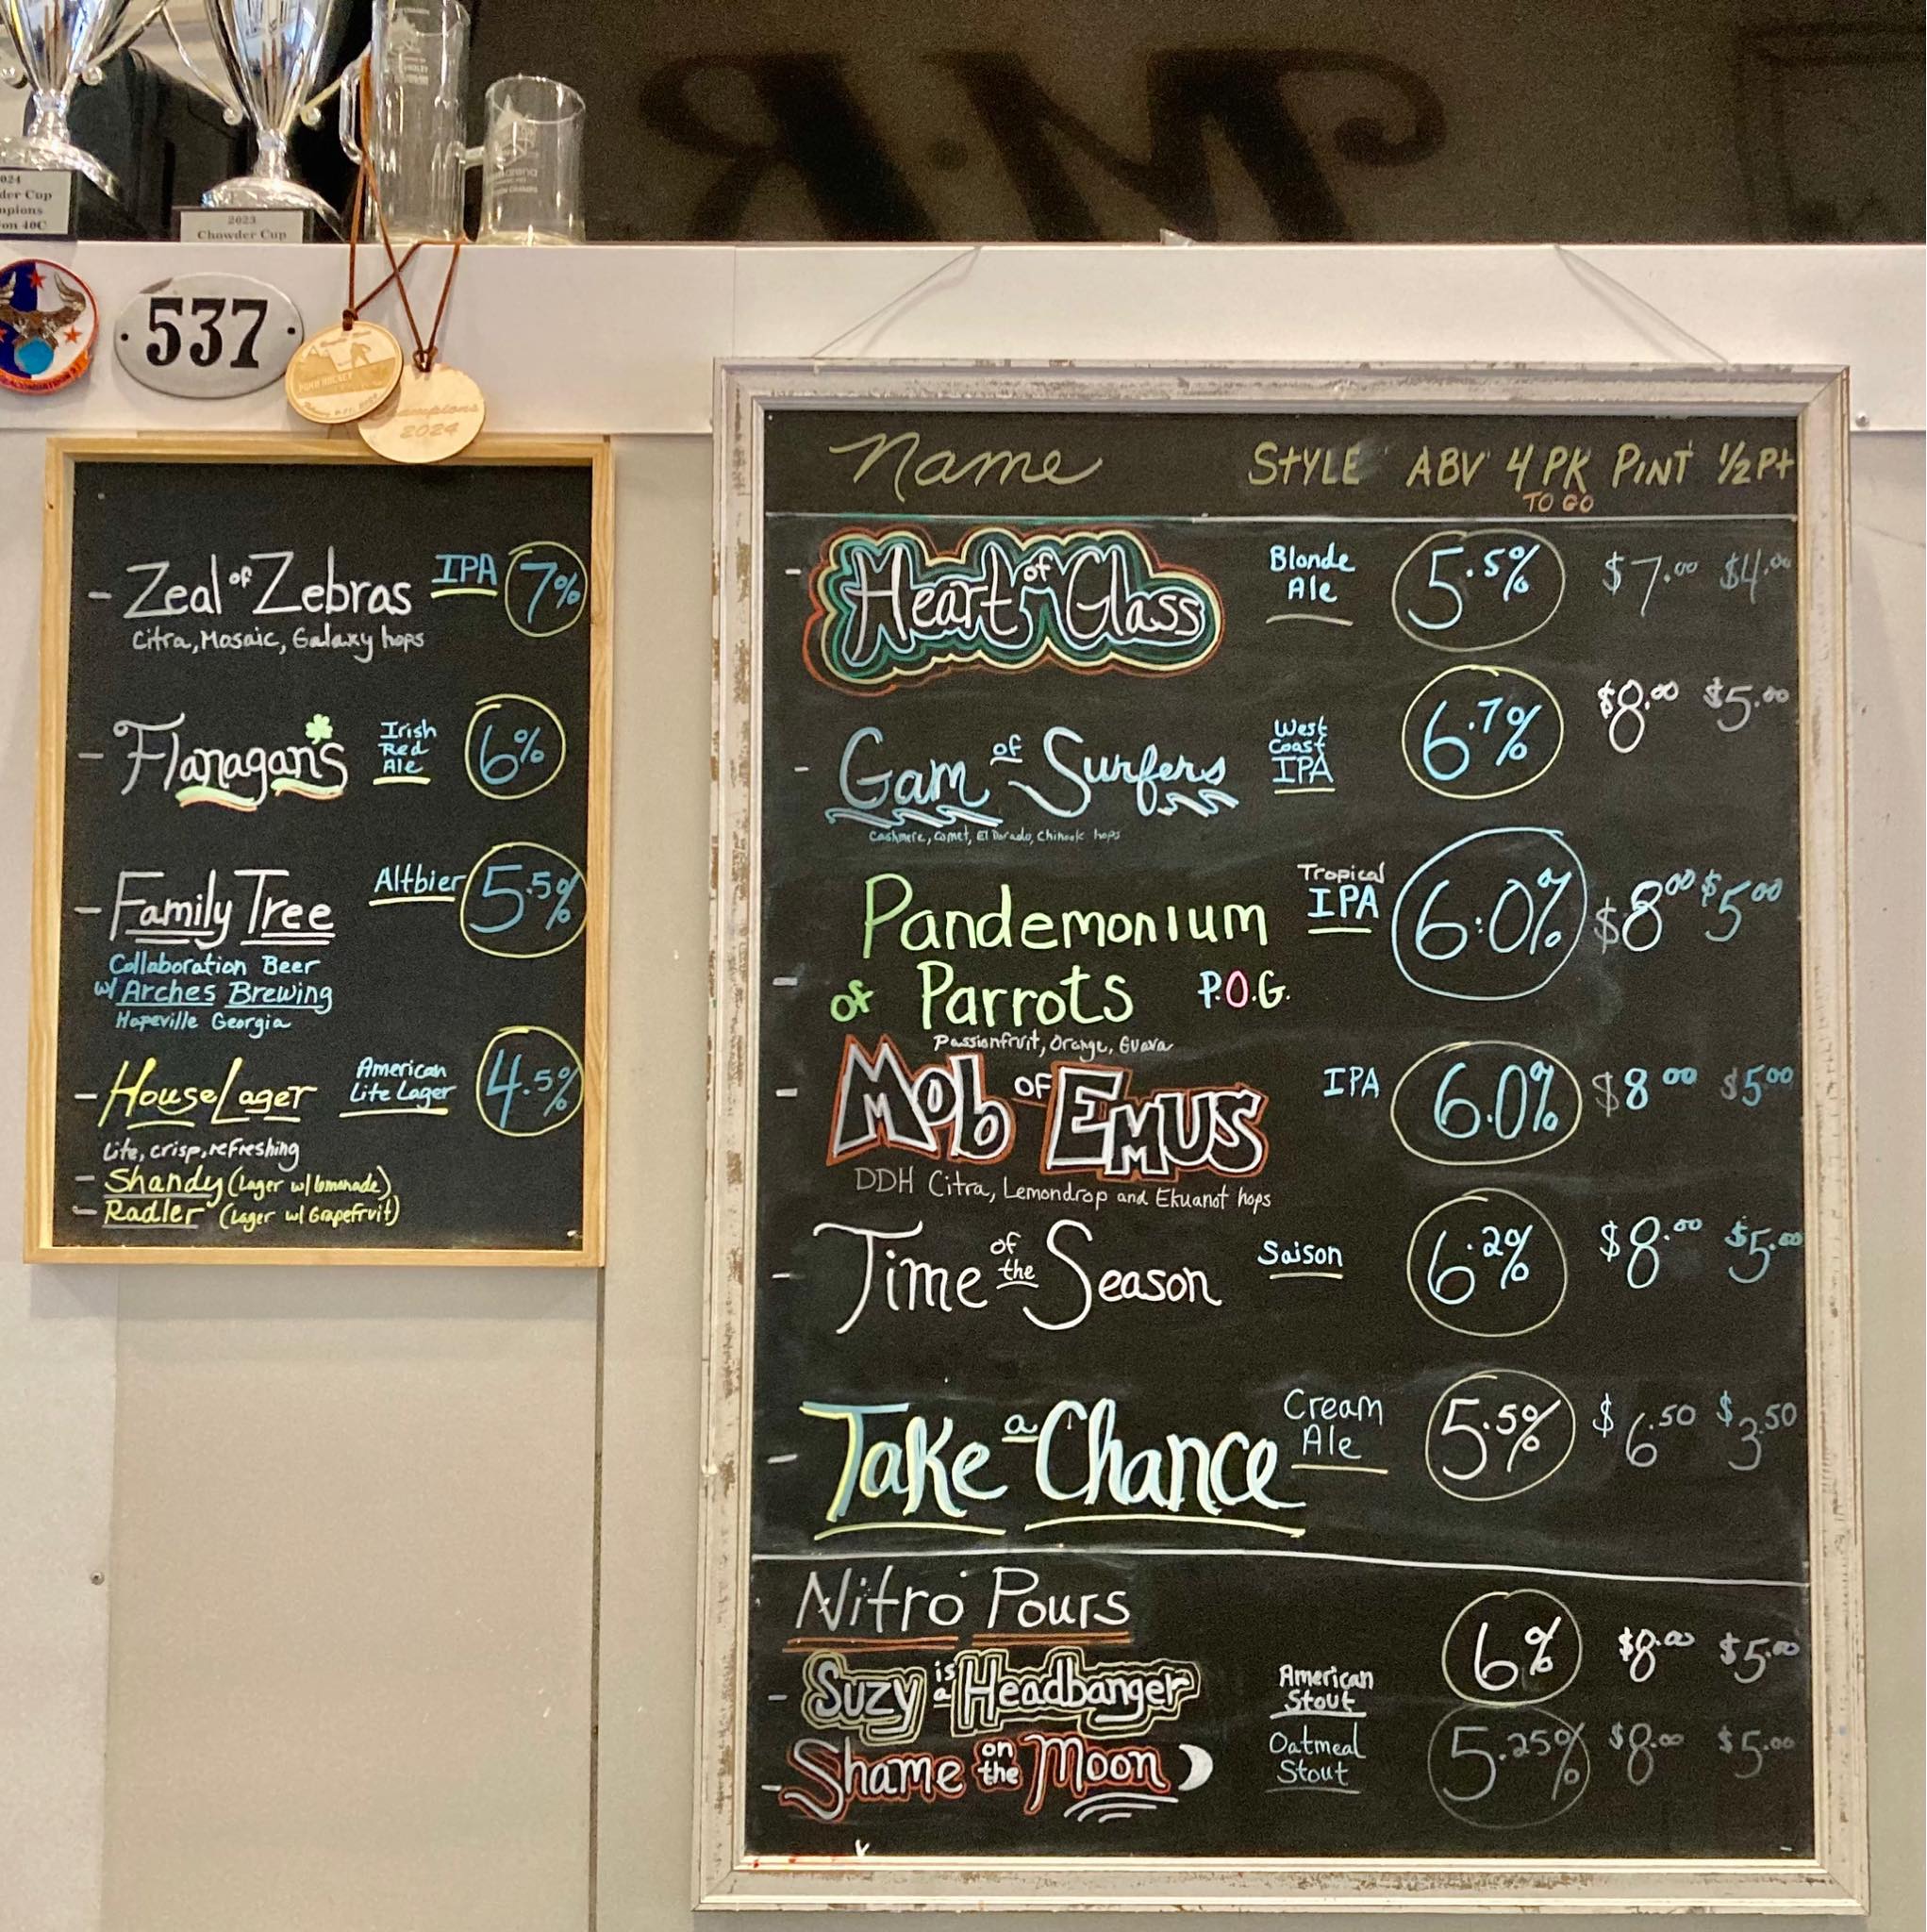 2024
Chowder Cup
Champions
2023
Chowder Cup
537
Champions
2024
- Zeal of Zebras IPA 7%
Citra, Mosaic, Galaxy hops
- Flanagan's Irish Red Ale 6%
- Family Tree Altbier 5.5%
Collaboration Beer
w/ Arches Brewing
Hapeville Georgia
- House Lager American Lite Lager 4.5%
Lite, crisp, refreshing
- Shandy (Lager w/ lemonade)
- Radler (Lager w/ Grapefruit)
Name STYLE ABV 4 PK PINT 1/2 Pt
TO GO
- Heart of Glass Blonde Ale 5.5% $7.00 $4.00
- Gam of Surfers West Coast IPA 6.7% $8.00 $5.00
Cashmere, Comet, El Dorado, Chinook hops
Pandemonium Tropical IPA 6.0% $8.00 $5.00
- of Parrots P.O.G.
Passionfruit, Orange, Guava
- Mob of Emus IPA 6.0% $8.00 $5.00
DDH Citra, Lemondrop and Ekuanot hops
- Time of the Season Saison 6.2% $8.00 $5.00
- Take a Chance Cream Ale 5.5% $6.50 $3.50
Nitro Pours
- Suzy is a Headbanger American Stout 6% $8.00 $5.00
- Shame on the Moon Oatmeal Stout 5.25% $8.00 $5.00